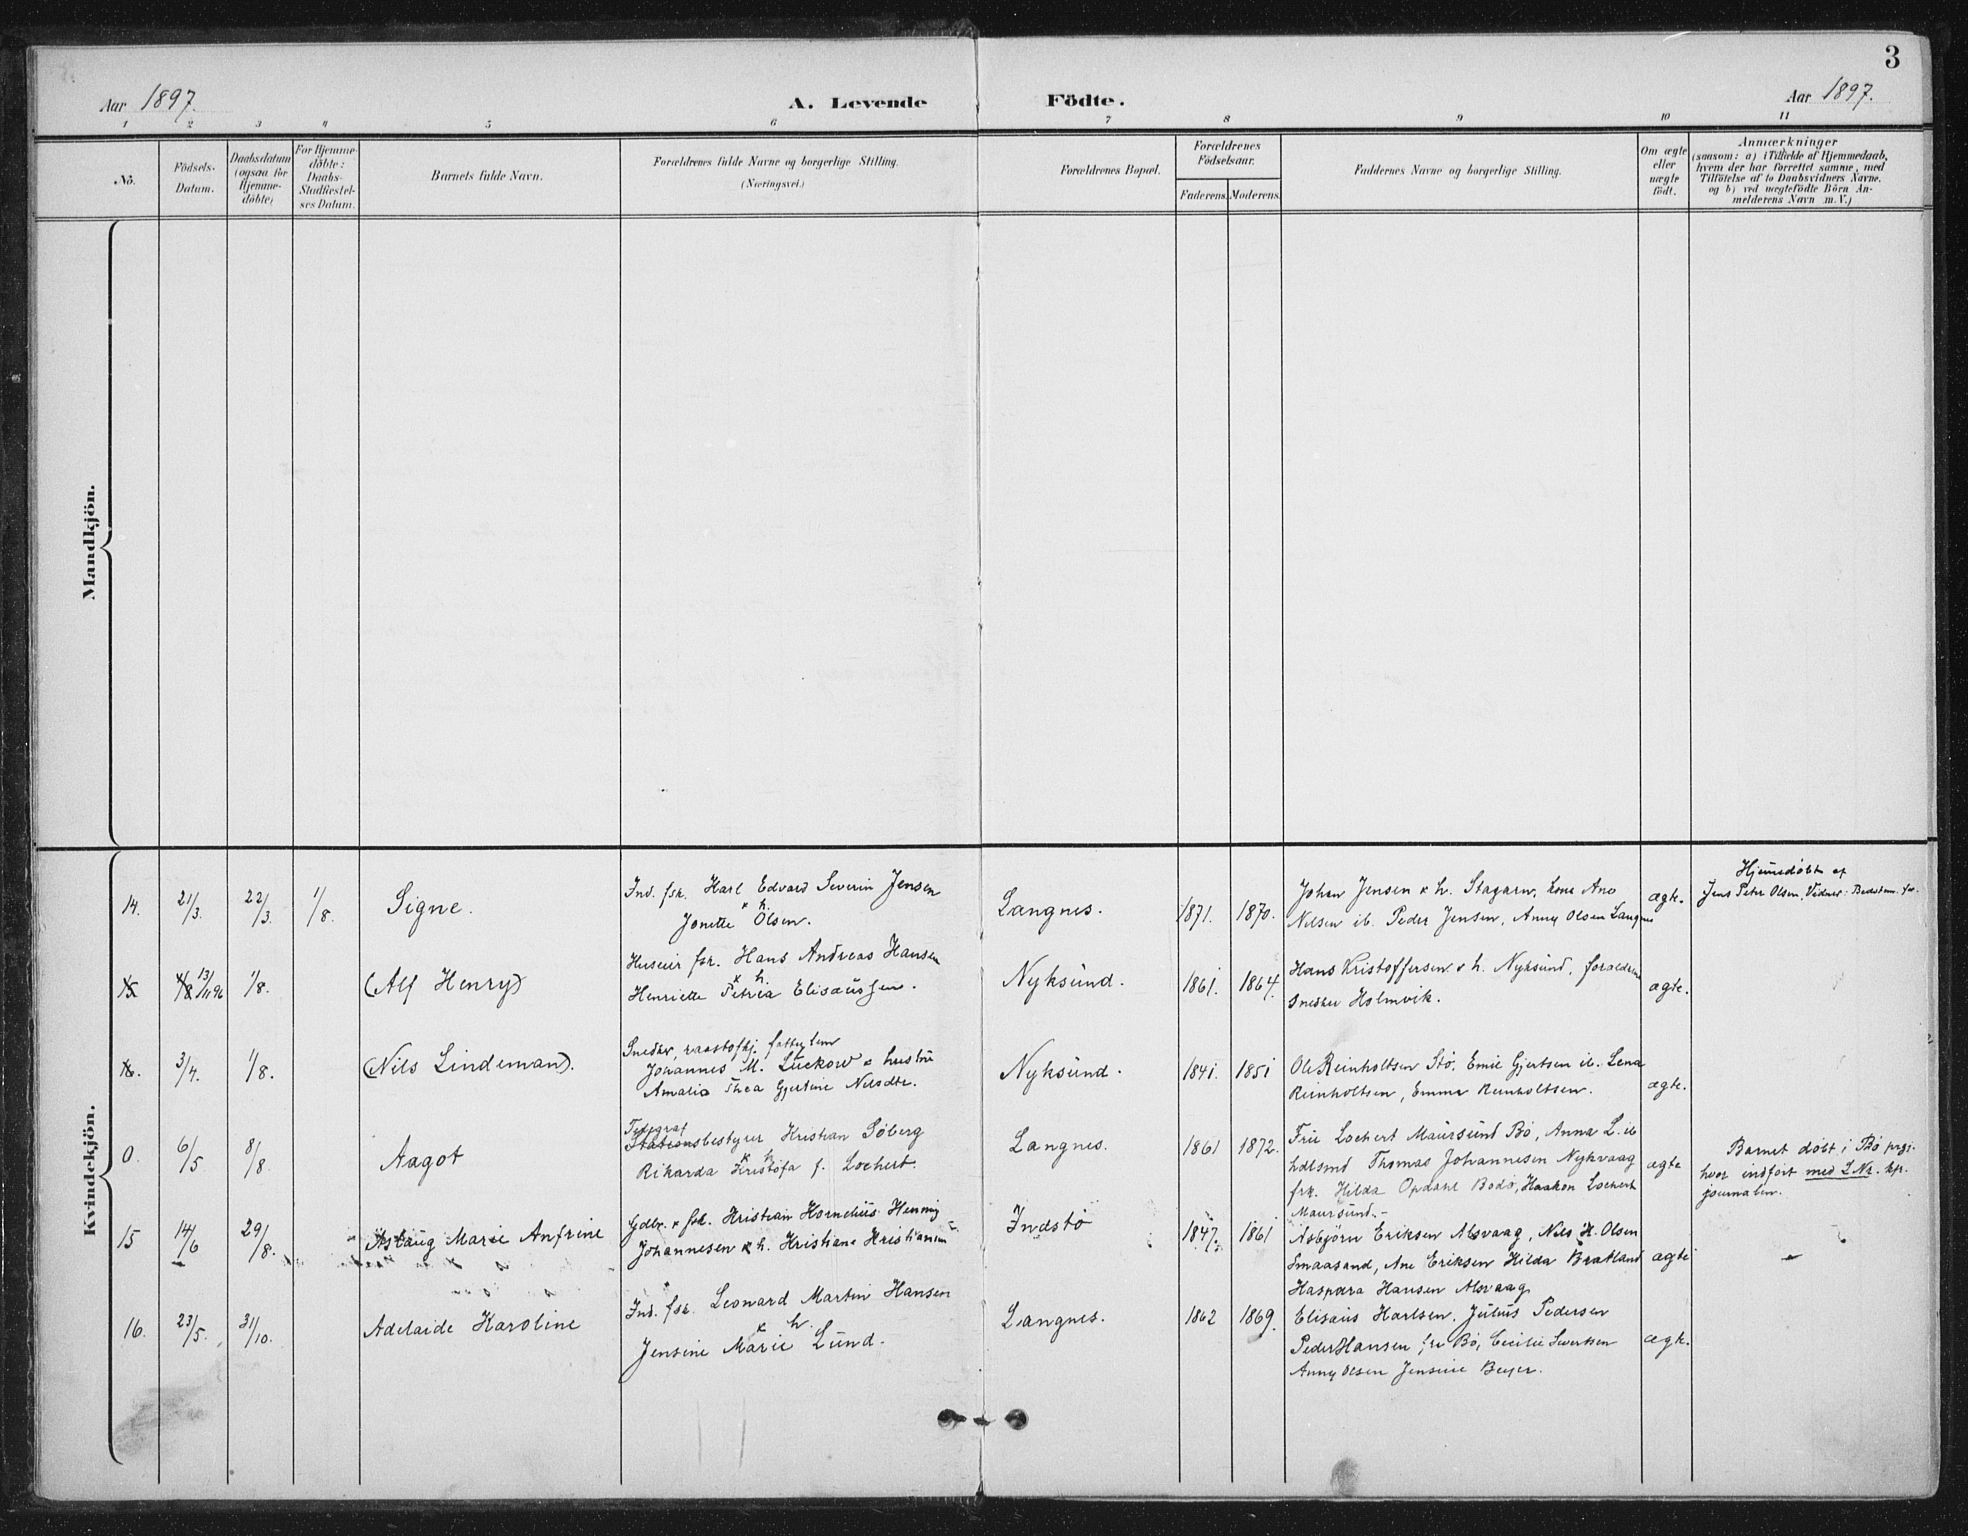 3
Aar 1897.
A. Levende Födte.
Aar 1897.
1 2 3 4 5 6 7 8 9 10 11
No.
Födsels-
Datum.
Daabsdatum
(ogsaa for
Hjemme-
döbte)
For Hjemme-
döbte:
Daabs-
Stadfæstel-
ses Datum.
Barnets fulde Navn.
Forældrenes fulde Navne og borgerlige Stilling.
(Næringsvei.)
Forældrenes Bopæl.
Forældrenes
Födselsaar.
Faderens. Moderens.
Faddernes Navne og borgerlige Stilling.
Om ægte
eller
uægte
födt.
Anmærkninger
(saasom: a) i Tilfælde af Hjemmedaab,
hvem der har forrettet samme, med
Tilföielse af to Daabsvidners Navne,
og b) ved uægtefödte Börn An-
melderens Navn m.V.)
Mandkjön.
Kvindekjön.
14. 21/3. 22/3. 1/8. Signe.
Ind. fsk. Karl Edvard Severin Jensen
& h.
Jonette Olsen.
Langnes. 1871. 1870.
Johan Jensen & h. Stagarn, Lone Ano
Nilsen ib. Peder Jensen, Anny Olsen Langnes
ægte.
Hjemmedöbt af
Jens Peter Olsen, Vidner:
15 13/11 96 1/8. (Alf Henry)
Huseier fsk. Hans Andreas Hansen
& h
Henriette Petrea Elisæussen.
Nyksund. 1861. 1864.
Hans Kristoffersen & h. Nyksund, forældrene
Snedker Holmvik.
ægte.
16. 3/4. 1/8. (Nils Lindeman).
Snedker,
Johannes M. Lückow & hustru
Amalia Thea Gjertine Nilsdtr.
Nyksund. 1841. 1851
Ole Reinholtsen Stö, Emil Gjertsen ib. Lena
Reinholtsen, Emma Reinholtsen.
ægte.
0. 6/5 8/8 Aagot
Telegraf
Stationsbestyrer Kristian Söberg
& h
Rikarda Kristofa f. Lochert.
Langnes. 1861 1872.
Frue Lochert Maursund Bö, Anna L. ib
hdlsmd Thomas Johannesen Nykvaag
frk. Hilda Opdahl Bodö, Haakon Lochert
Maursund.
ægte
Barnet döbt i Bö prgj.
hvor indfört med L Nr. kp.
journalen.
15 14/6 29/8. Aslaug Marie Anfrine
Gdbr. & fsk. Kristian Kornelius Henning
Johannesen & h. Kristiane Kristiansen
Indstö 1847. 1861
Asbjörn Eriksen Alsvaag, Nils H. Olsen
Smaasand, Ane Eriksen Hilda Bratland
Kaspara Hansen Alsvaag
ægte
16. 23/5. 31/10. Adelaide Karoline
Ind. fsk. Leonard Martin Hansen
& h.
Jensine Marie Lund.
Langnes. 1862 1869.
Elisæus Karlsen, Julius Pedersen
Peder Hansen fra Bö, Cecilie Sivertsen
Anny Olsen Jensine Beyer.
ægte.